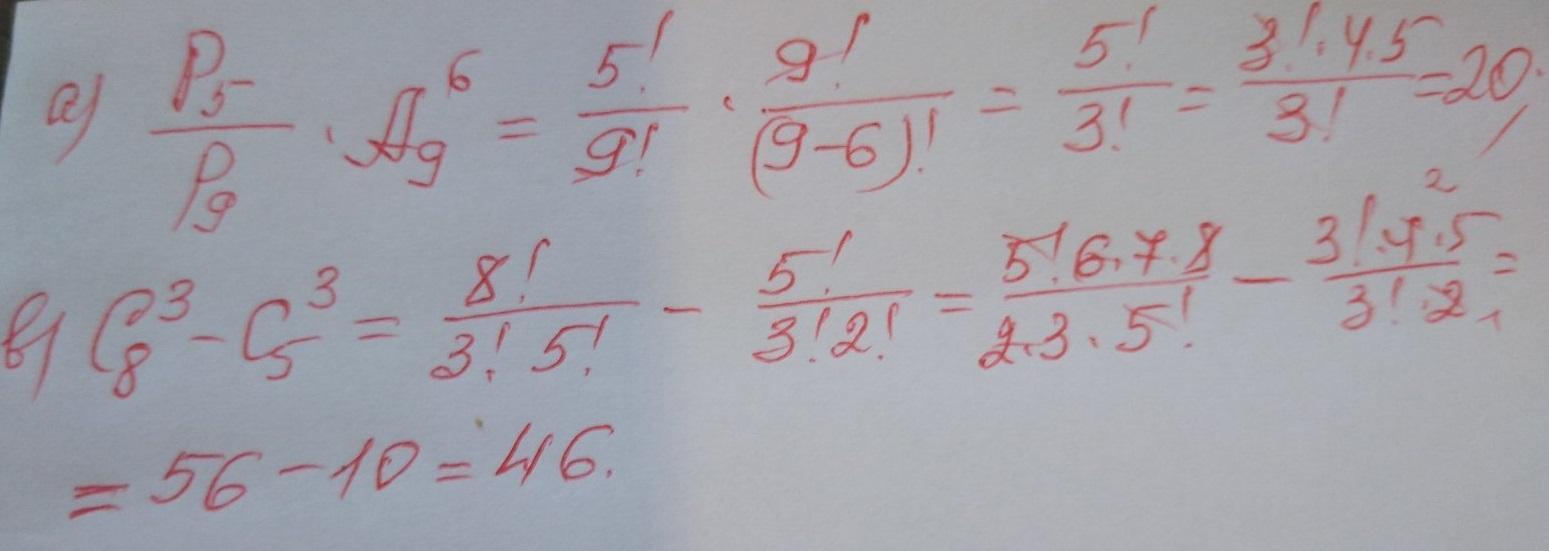 а) P₅/P₉ · A₉⁶ = 5!/9! · 9!/(9-6)! = 5!/3! = 3!·4·5/3! = 20;
в) C₈³ - C₅³ = 8!/3! 5! - 5!/3! 2! = 5! 6·7·8/2·3·5! - 3!·4·5/3!·2 = 2
= 56 - 10 = 46.